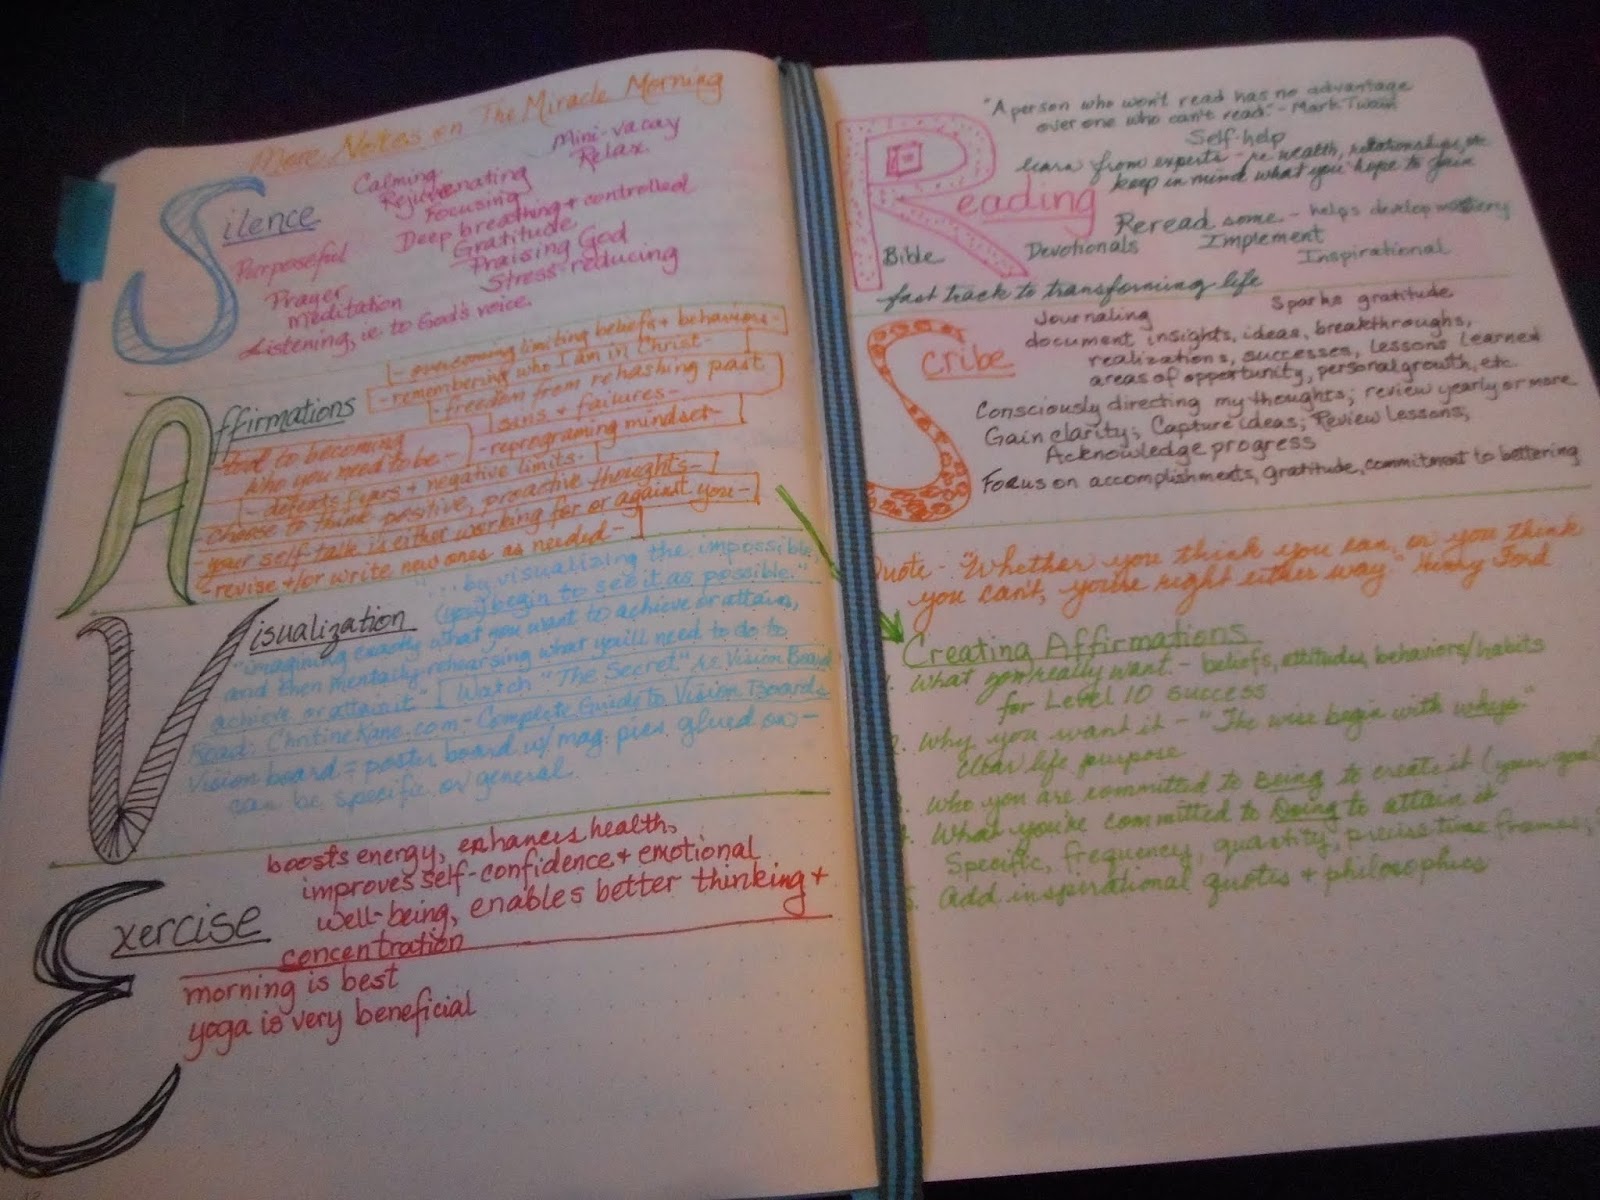 More Notes on The Miracle Morning
Silence
Calming
Rejuvenating
Focusing
Deep breathing + controlled
Gratitude
Praising God
Stress-reducing
Mini-vacay
Relax
Purposeful
Prayer
Meditation
Listening, ie. to God's voice.
Affirmations
- overcoming limiting beliefs + behaviors -
- remembering who I am in Christ -
- freedom from rehashing past
sins + failures -
- tool to becoming
who you need to be. -
- reprograming mindset -
- defeats fears + negative limits -
choose to think positive, proactive thoughts -
your self-talk is either working for or against you -
- revise +/or write new ones as needed -
Visualization
"...by visualizing the impossible,
(you) begin to see it as possible."
"imagining exactly what you want to achieve or attain,
and then mentally rehearsing what you'll need to do to
achieve or attain it" Watch "The Secret" re Vision Board
Read: ChristineKane.com - Complete Guide to Vision Boards
Vision board = poster board w/ mag. pics glued on -
can be specific or general
Exercise
boosts energy, enhances health,
improves self-confidence + emotional
well-being, enables better thinking +
concentration
morning is best
yoga is very beneficial
"A person who won't read has no advantage
over one who can't read." - Mark Twain
Reading
Self-help
learn from experts - re wealth, relationships, etc
keep in mind what you hope to gain
Reread some - helps develop mastery
Bible Devotionals Implement
Inspirational
fast track to transforming life
Scribe
Journaling Sparks gratitude
document insights, ideas, breakthroughs,
realizations, successes, lessons learned
areas of opportunity, personal growth, etc.
Consciously directing my thoughts; review yearly or more
Gain clarity; Capture ideas; Review Lessons;
Acknowledge progress
Focus on accomplishments, gratitude, commitment to bettering
Quote - "Whether you think you can, or you think
you can't, you're right either way" Henry Ford
Creating Affirmations
1. What you really want - beliefs, attitudes, behaviors/habits
for Level 10 success
2. Why you want it - "The wise begin with whys."
clear life purpose
3. Who you are committed to Being to create it (your goal
4. What you're committed to Doing to attain it
Specific, frequency, quantity, precise time frames,
5. Add inspirational quotes + philosophies